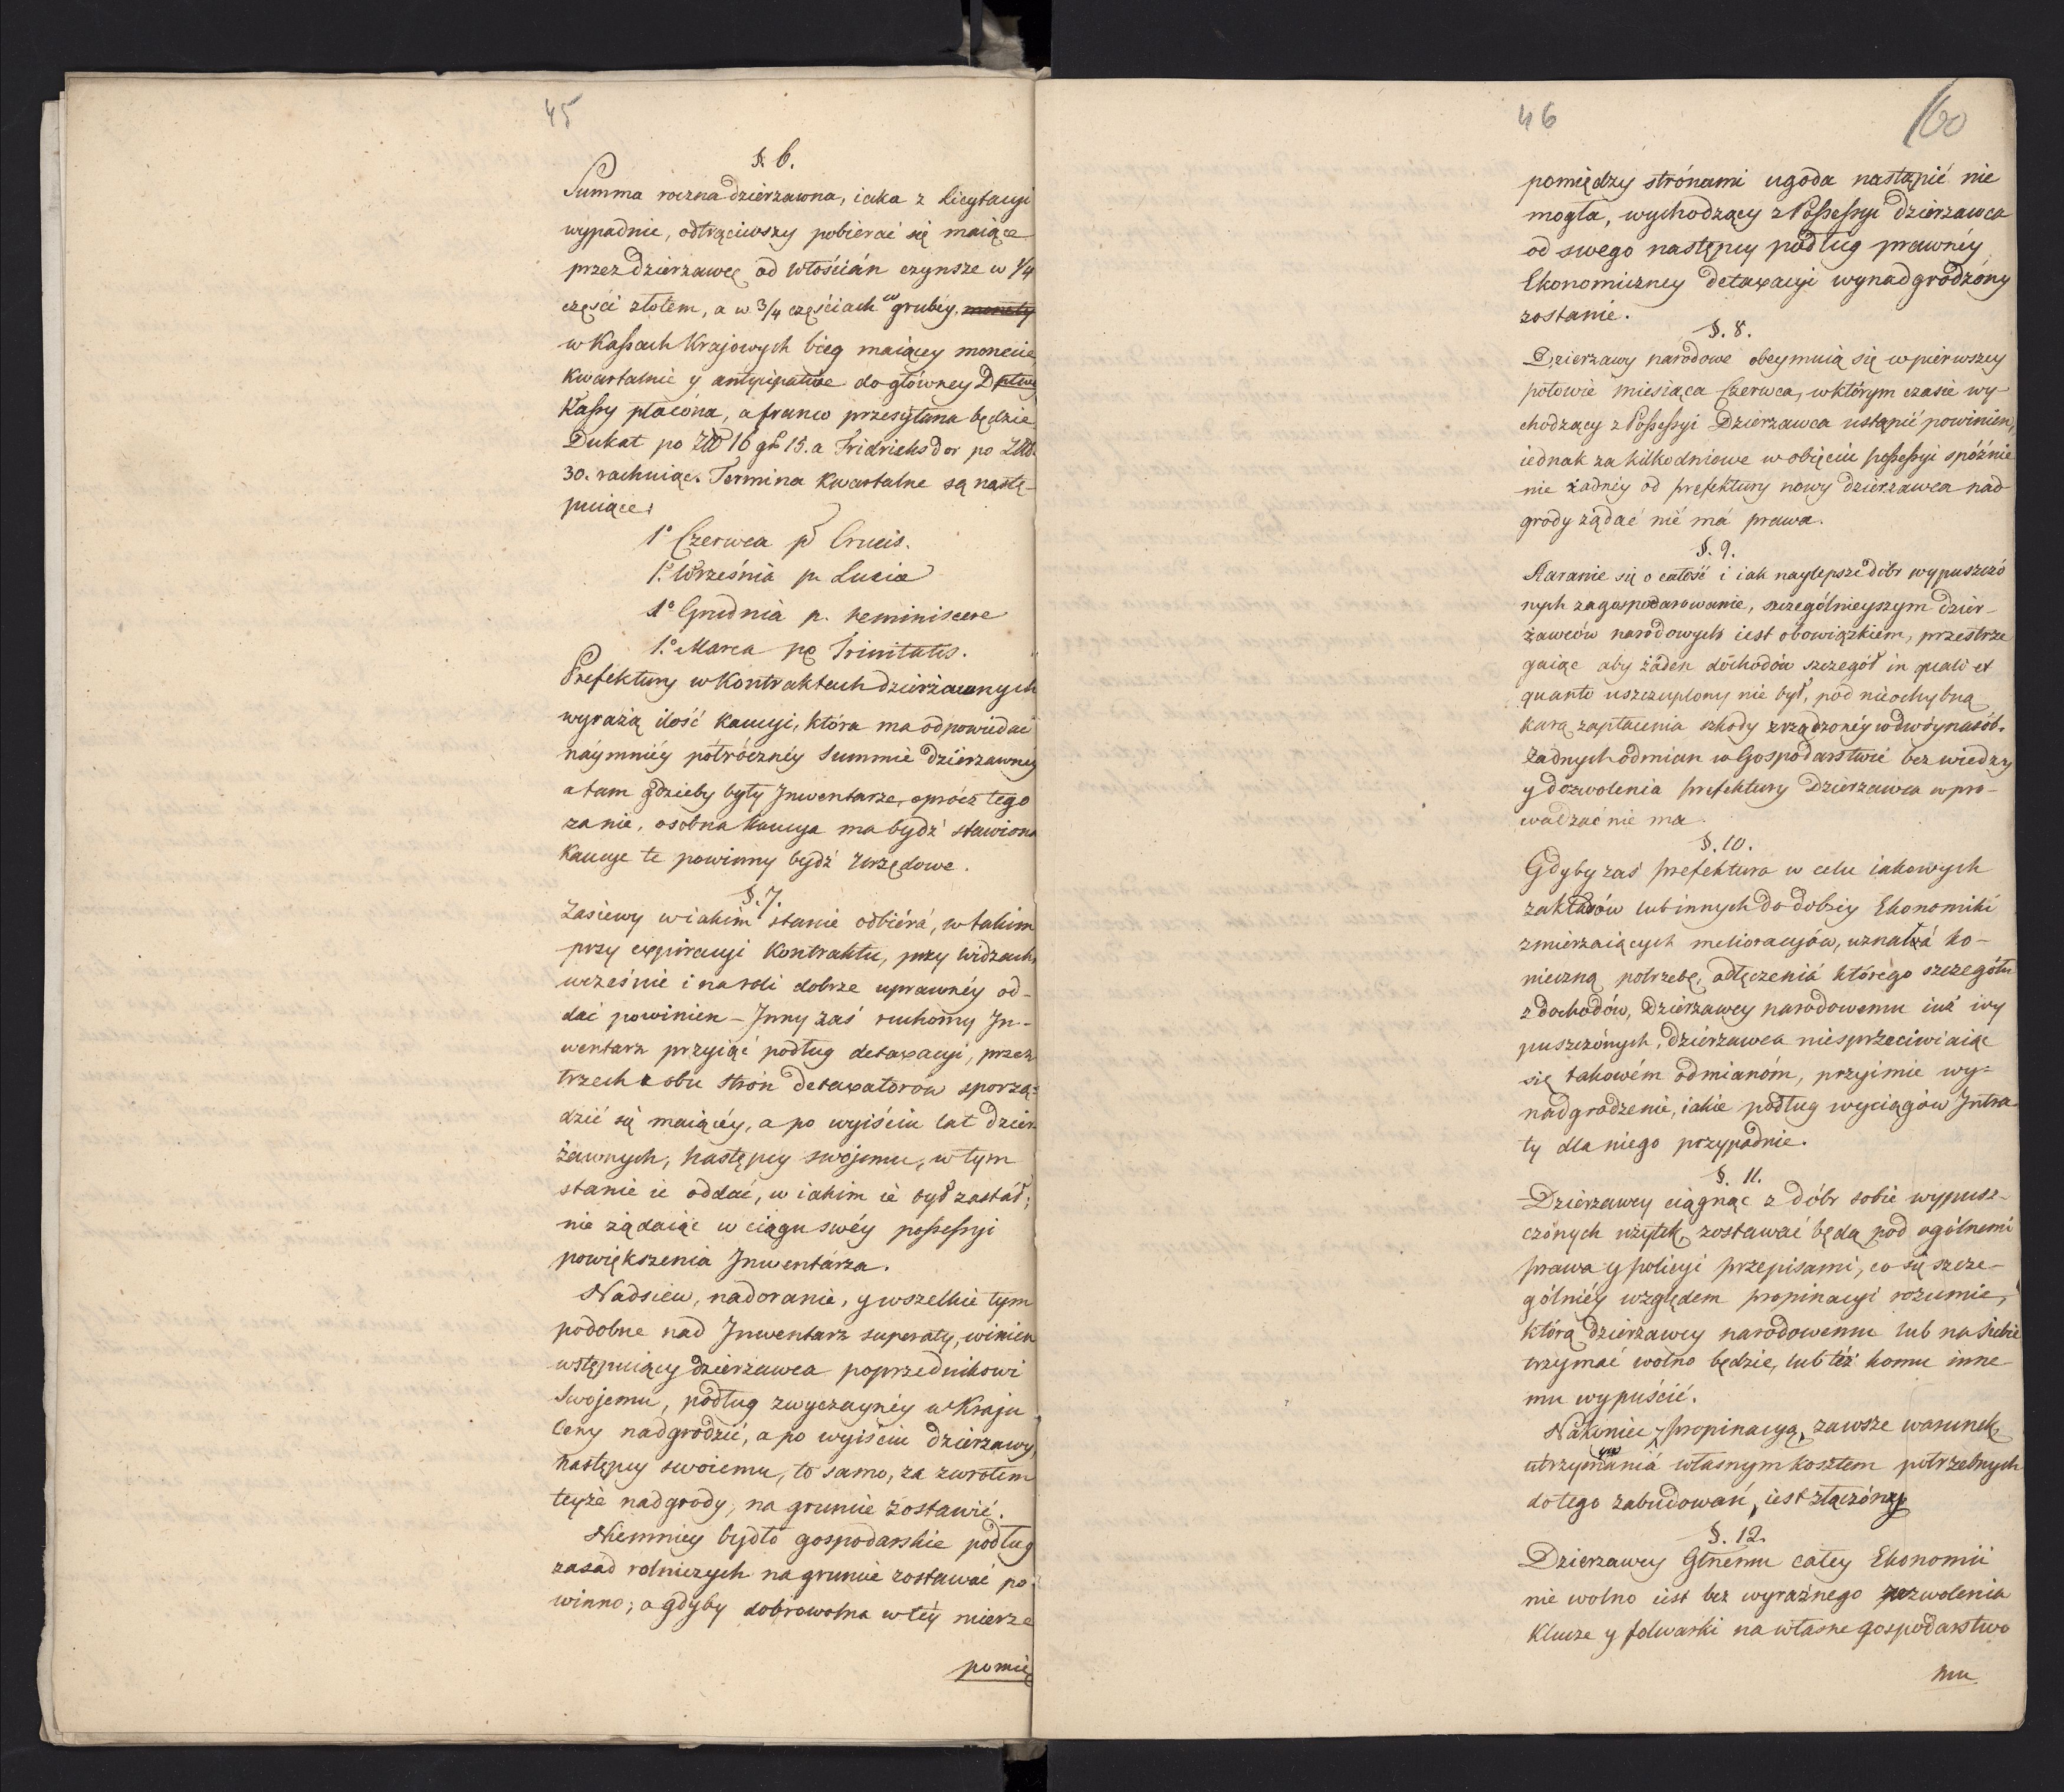 45
§. 6.
Summa roczna dzierzawna, iaka z licytacyi
wypadnie, odtrąciwszy pobierać się maiące
przez dzierzawcę od włościán czynsze w 1/4
części złotem, a w 3/4 częściach w grubey monety
w Kassach Krajowych bieg maiącey monecie
kwartalnie y antycipative do główney Dptwey
Kassy płacóna, a franco przesyłana będzie
Dukat po Złł 16 gr 15. a Fridrichsdor po Złł.
30. rachuiąc. Termina kwartalne są nastę-
puiące:
1° Czerwca p Crucis.
1. Września p. Lucia
1° Grudnia p. reminiscere
1.° Marca p Trinitatis.
Prefektury w Kontraktach dzierżawnych
wyrażą ilość kaucyi, która ma odpowiedać
náymniéy półrócznéy Summie dzierzawnéy
a tam gdzieby były Jnwentarze, oprócz tego
za nie, osobna kaucya ma bydź stawiona
Kaucye te powinny bydź urzędowe.
§. 7.
Zasiewy w iakim stanie odbiérá, w takim
przy expiracyi Kontraktu, przy widzach,
wcześnie i na roli dobrze uprawnéy od-
dać powinien – Jnny zaś ruchomy Jn-
wentarz przyiąć podług detaxacyi, przez
trzech z obu strón detaxatorów sporzą-
dzić się maiącéy, a po wyiściu lat dzier
żawnych, następcy swojemu, w tym
stanie ie oddać, w iakim ie był zastáł;
nie żądaiąc w ciągu swéy possessyi
powiększenia Jnwentárza.
Nadsiew, nadoranie, y wszelkie tym
podobne nad Jnwentarz superaty, winien
wstępuiący dzierżawca poprzednikowi
Swojemu, podług zwyczaynéy w Kraju
Ceny nadgrodzić, a po wyiściu dzierzawy,
następcy swoiemu, to samo, za zwrotem
teyże nadgrody, na gruncie zostawić.
Niemniey bydło gospodarskie podług
zasad rolniczych na gruncie zostawać po-
winno; a gdyby dobrowolna w téy mierze
pomię
46
60
pomiędzy strónami ugoda nastąpić nie
mogła, wychodzący z Possessyi dzierzawca
od swego następcy podług prawnéy
Ekonomiczney detaxacyi wynadgrodzóny
zostanie.
§. 8.
Dzierzawy narodowe obeymuią się w pierwszey
połowie miesiąca Czerwca, w którym czasie wy-
chodzący z Possessyi Dzierzawca ustąpić powinien,
iednak za kilkodniowe w obięciu possessyi spóźnie
nie żadnéy od prefektury nowy dzierzawca nad-
grody żądać nié má prawa.
§. 9.
Staranie się o całość i iak naylepsze dóbr wypuszczó
nych zagospodarowanie, szczególnieyszym dzier-
żawców narodowych iest obowiązkiem, przestrze
gaiąc aby żáden dóchodów szczegół in quali et
quanto uszczuplony nie był, pod nieochybną
karą zapłacenia szkody zrządzonéy w dwóynasób.
Żadnych odmian w Gospodarstwie bez wiedzy
y dozwolenia prefektury Dzierzawca wpro-
wadzać nie ma.
§. 10.
Gdyby zaś prefektura w celu iakowych
zakładów lub innych do dobrey Ekonomiki
zmierzaiących melioracyiów, uznała ko-
nieczną potrzebę, odłączeniá którego szczegółu
z dochodów, Dzierżawcy narodowemu iuż wy
puszczónych, dzierżawca niesprzeciwiaiąc
się takowém odmianóm, przyimie wy-
nadgrodzenie, iakie podług wyciągów Jntra
ty dla niego przypadnie.
§. 11.
Dzierzawcy ciągnąc z dóbr sobie wypusz-
czónych użytek, zostawać będą pod ogólnemi
prawa y policyi przepisami, co się szcze-
gólniéy względem propinacyi rozumie,
którą dzierzawcy narodowemu lub na siebie
trzymać wolno będzie, lub téż komu inne-
mu wypuścić.
Nakoniec z propinacyą, zawsze warunek
utrzymaniá własnym kosztem potrzebnych
do tego zabudowań, iest złączóny
§. 12.
Dzierzawcy Głnému całey Ekonomii
nie wolno iest bez wyraźnego zezwolenia
Klucze y folwarki na własne gospodarstwo
mu